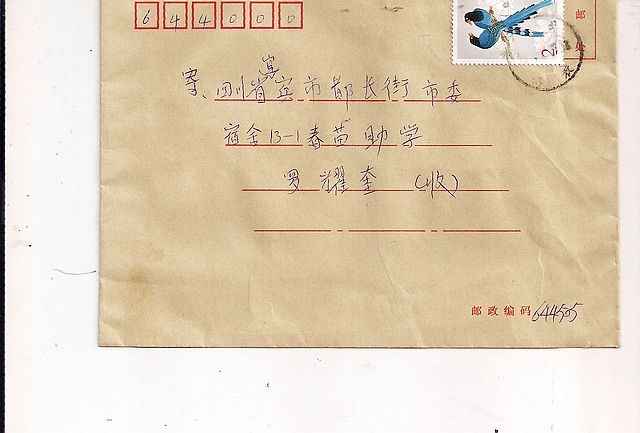 644000
邮
处
2
宜
寄、四川省宾市都长街市委
宿舍13-1春苗助学
罗耀奎(收)
邮政编码644505